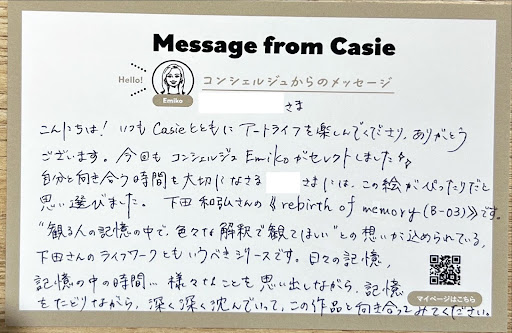 Message from Casie
Hello!
コンシェルジュからのメッセージ
Emiko
さま
こんにちは！いつもCasieとともにアートライフを楽しんでくださり、ありがとう
ございます。今回もコンシェルジュEmikoがセレクトしました
自分と向き合う時間を大切になさる さまには、この絵がぴったりだと
思い選びました。下田和弘さんの《rebirth of memory(B-03)》です。
"観る人の記憶の中で、色々な解釈で観てほしい"との想いが込められている、
下田さんのライフワークともいうべきシリーズです。日々の記憶、
記憶の中の時間… 様々なことを思い出しながら、記憶
をたどりながら、深く深く沈んでいって、この作品と向き合ってみてください。
マイページはこちら